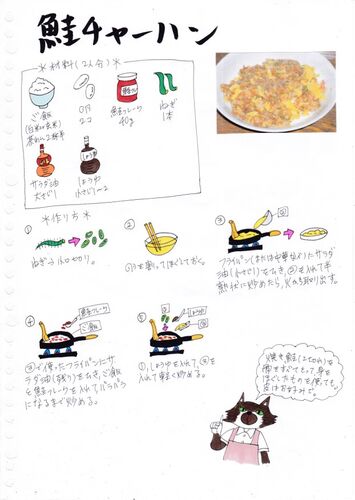 鮭チャーハン
＊材料(2人分)＊
ご飯
(白米or玄米)
茶わん2杯半
卵
2コ
鮭フレーク
鮭フレーク
40g
ねぎ
1本
サラダ油
大さじ1
しょうゆ
小さじ1〜2
＊作り方＊
①
ねぎは小口切り。
②
卵を割ってほぐしておく。
③
②
フライパン(または中華なべ)にサラ
ダ油(小さじ1)をひき、②を入れて半
熟状に炒めたら、火から取り出す。
④
鮭フレーク
ご飯
③で使ったフライパンにサ
ラダ油(残り)をひき、ご飯
と鮭フレークを入れてパラパラ
になるまで炒める。
⑤
①
しょうゆ
③
①、しょうゆを入れ、③を
入れて軽く炒める。
焼き鮭(2切れ)の
骨をすべてとって、身を
ほぐしたものを使っても。
皮はお好みで。